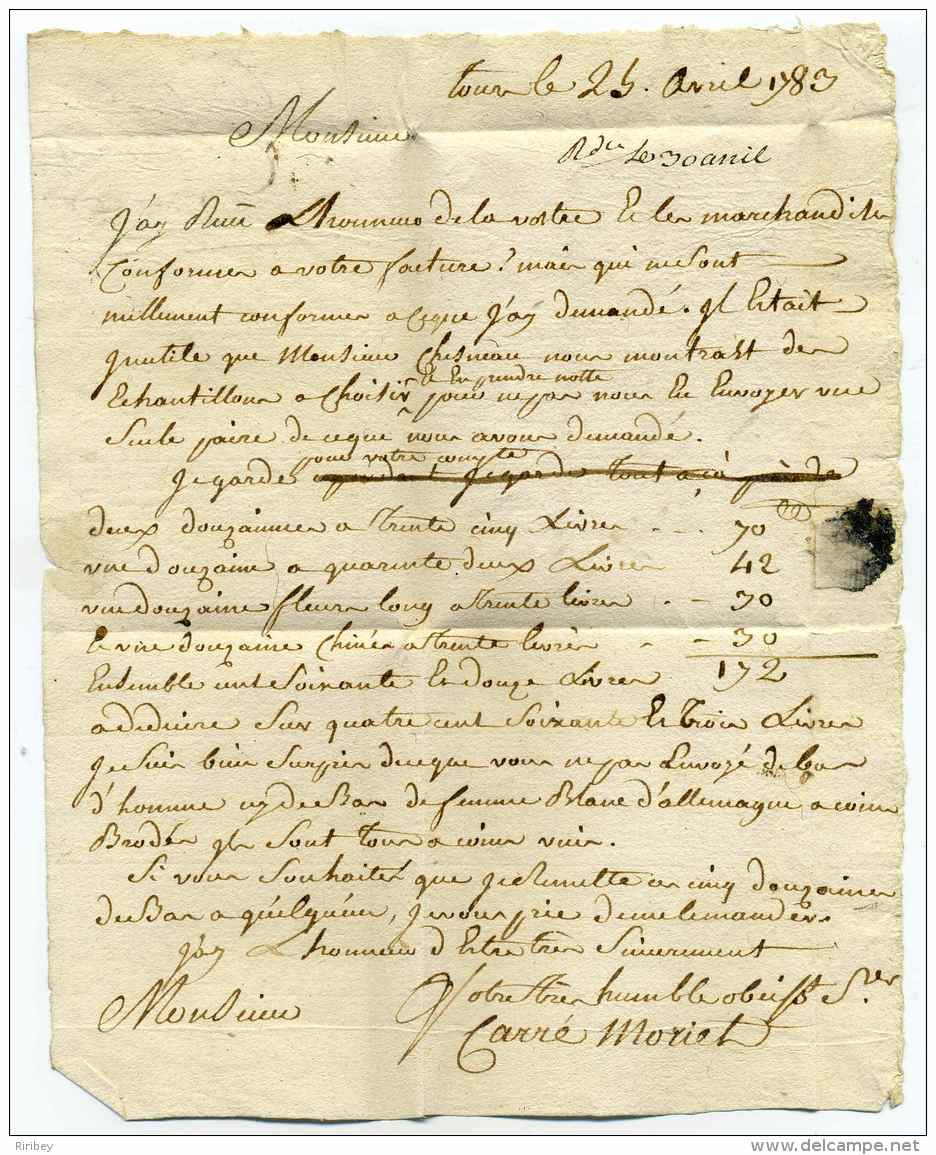 tours le 25. Avril 1783
Monsieur
Rdue le 30 avril
J'ay Reçu L'honneur de la vostre Et les marchandises
Conformes a votre facture, mais qui ne sont
nullement conformes a ceque J'ay demandé. Jl Estait
Jnutile que Monsieur Chesneau nous montrast des
Et En prendre notte
Echantillons a Choisir pour ne pas nous En Envoyer une
Seule paire de ceque nous avons demandé.
pour votre compte
Je garde cependant Je garde tout a
deux douzainnes a trente cinq Livres 70
une douzaine a quarente deux Livres 42
une douzaine fleurs long a trente livres 30
Et une douzaine Chinés a trente livres 30
Ensemble cent Soixante Et douze Livres 172
a deduire Sur quatre cent Soixante Et trois Livres
Je Suis bien Surpris de ceque vous ne pas Envoyé de bas
d'homme ny de Bas de femme Blanc d'allemagne, a coins
Brodés Jls Sont tous a coins unis.
Si vous Souhaités que Je Remette ces cinq douzaines
de Bas a quelqu'un, Je vous prie de me le mander.
J'ay L'honneur d'Estre tres Sincerement
Monsieur Votre tres humble obeisst Ser
Carré Moriet
Riribey
www.delcampe.net